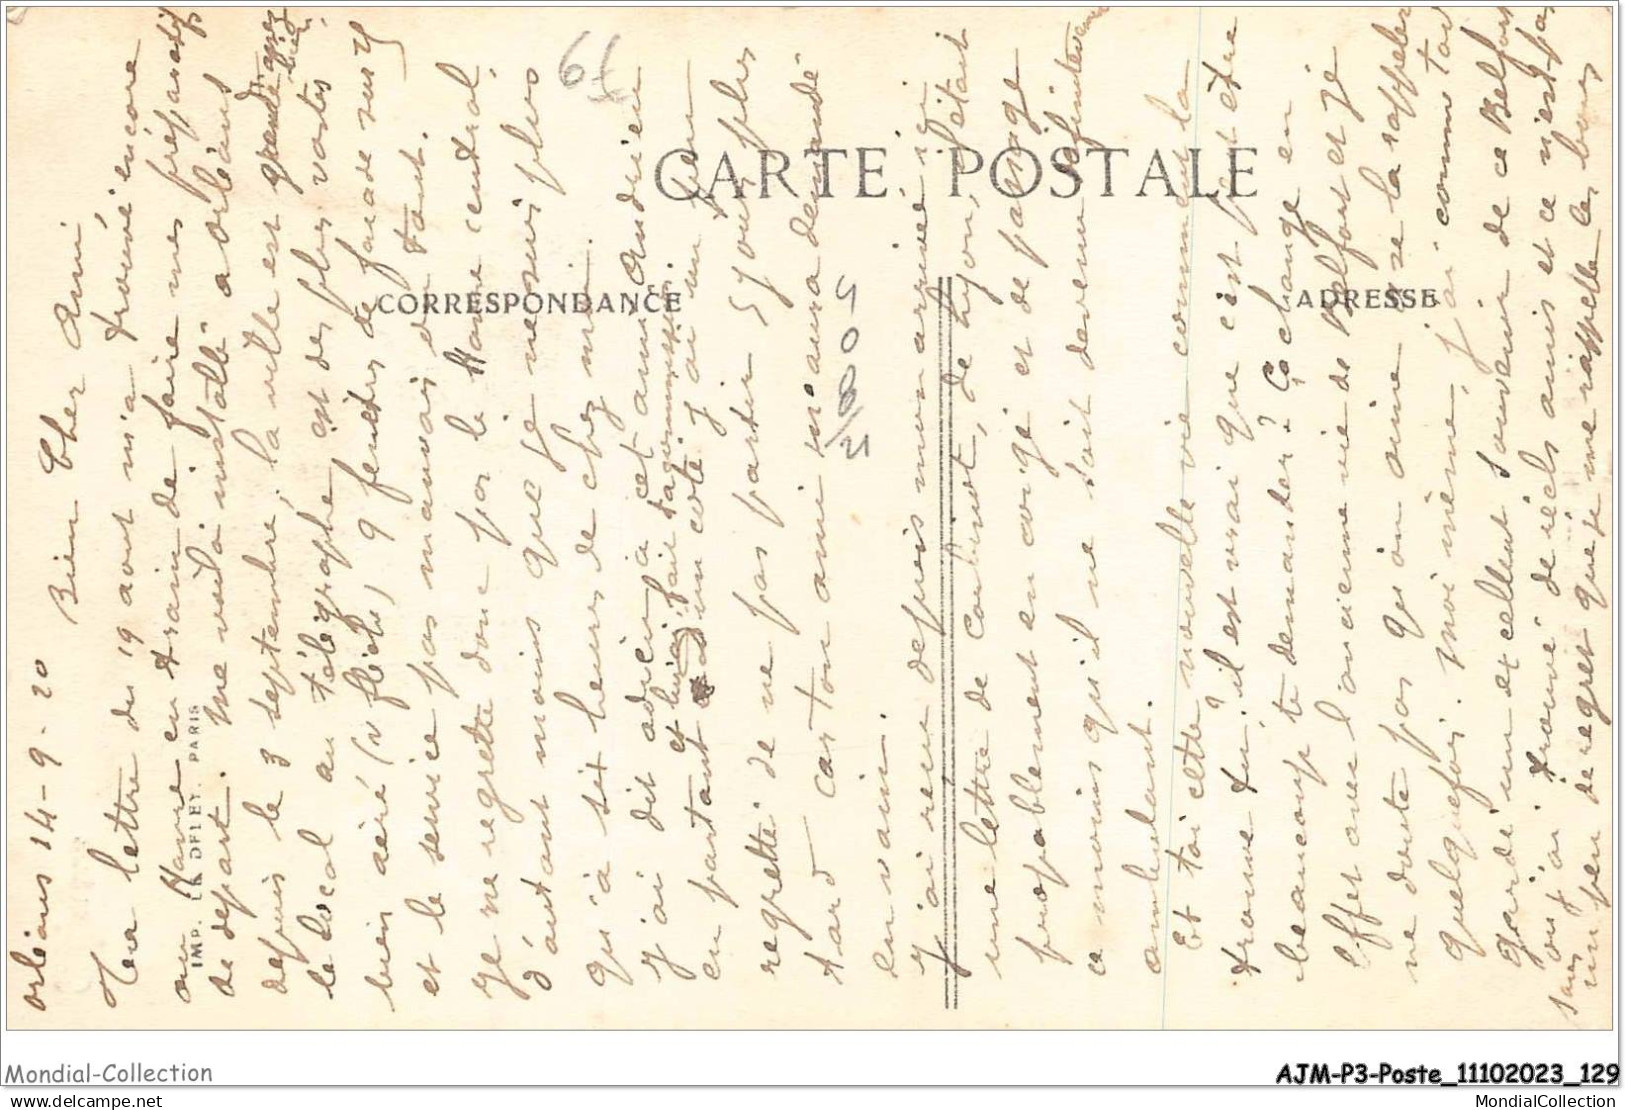 CARTE POSTALE
CORRESPONDANCE
ADRESSE
IMP. LE DELEY. PARIS
67
Orléans 14-9-20
Bien Cher Ami
Ta lettre du 19 aout m'a trouvé encore
au Havre en train de faire mes préparatifs
de départ. Me voilà installé à Orléans
depuis le 3 septembre, la ville est grande assez bien
le local au télégraphe est des plus vastes,
bien aéré (v flèche) 9 fenêtres de façade sur
et le service pas mauvais du tout.
Je ne regrette donc pas le Havre central,
d'autant moins que je ne suis plus
qu'à six heures de chez moi.
J'ai dit adieu à cet ami Andrieu
et lui ai fait ta commission
en partant un coté j'ai un peu
regretté de ne pas partir 5 jours plus
tard car ton ami m'aura demandé
en vain.
J'ai reçu depuis mon arrivée ici
une lettre de Corbinot, de Lyon, il était
probablement en congé et de passage
à moins qu'il ne soit devenu définitivement
ambulant.
Et toi cette nouvelle vie comment la
trouve tu? il est vrai que c'est peut être
beaucoup te demander? Ça change en
effet avec l'ancienne vie de Belfort et je
ne doute pas qu'on aime à se la rappeler
quelquefois. Moi même, j'ai comme toi
gardé un excellent souvenir de ce Belfort
où j'ai trouvé de réels amis et ce n'est pas
sans un peu de regret que je me rappelle ces bons
Mondial-Collection
AJM-P3-Poste_11102023_129
delcampe.net
MondialCollection